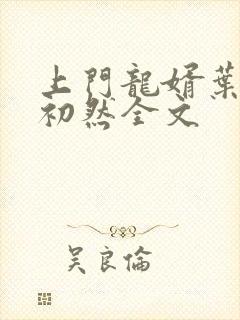 上門龍婿葉
初然全文
吳良倫